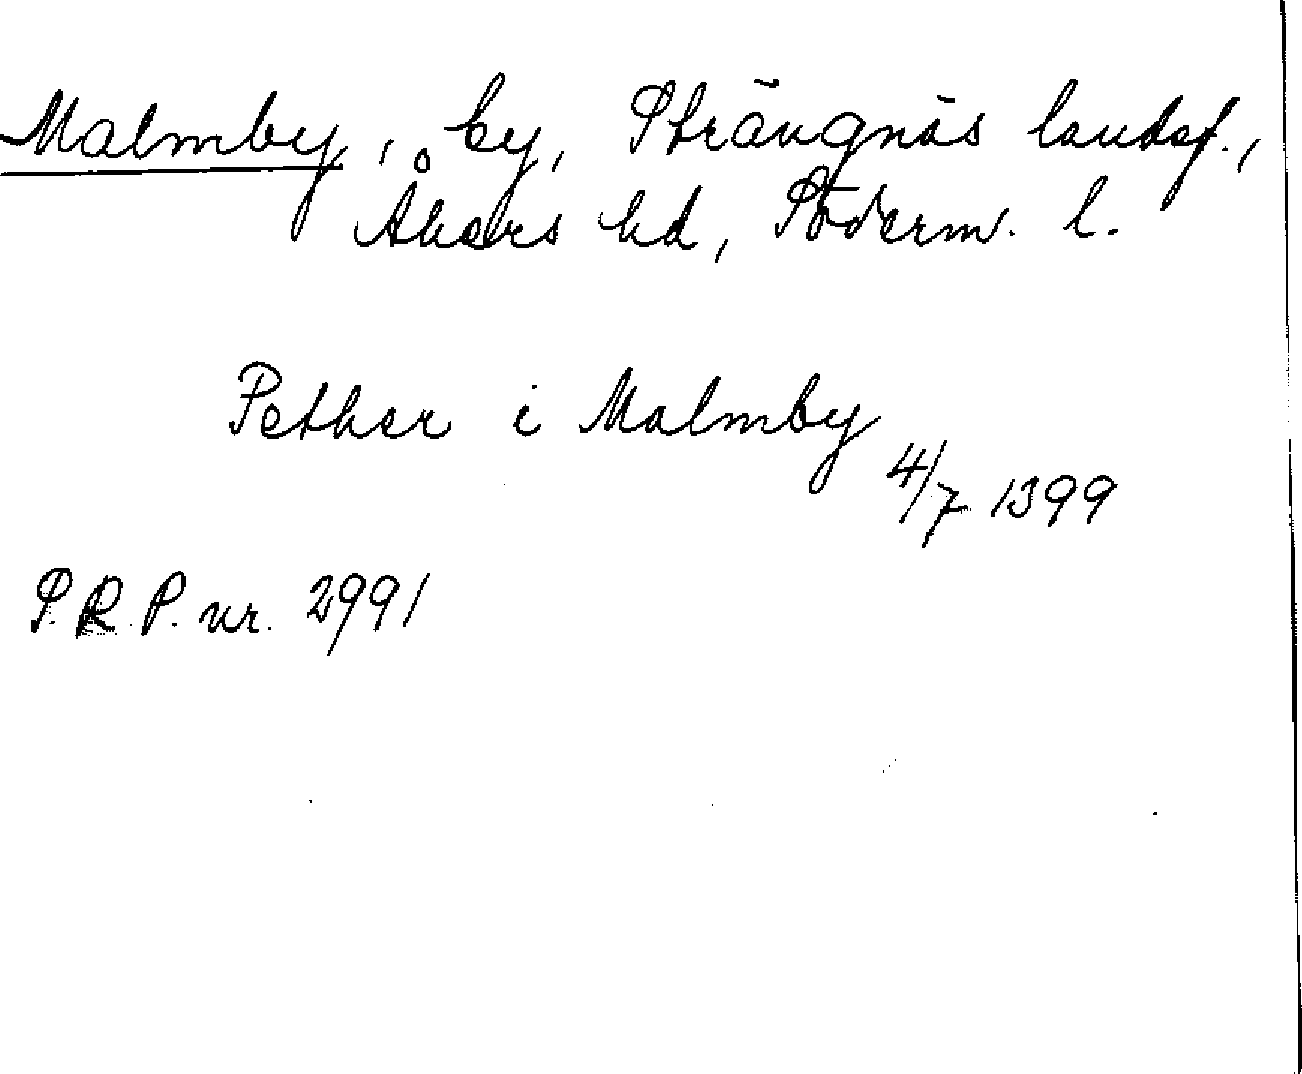 Malmby, by, Strängnäs landsf.,
Åkers hd, Söderm. l.
Pether i Malmby
4/7 1399
S.R.P. nr. 2991